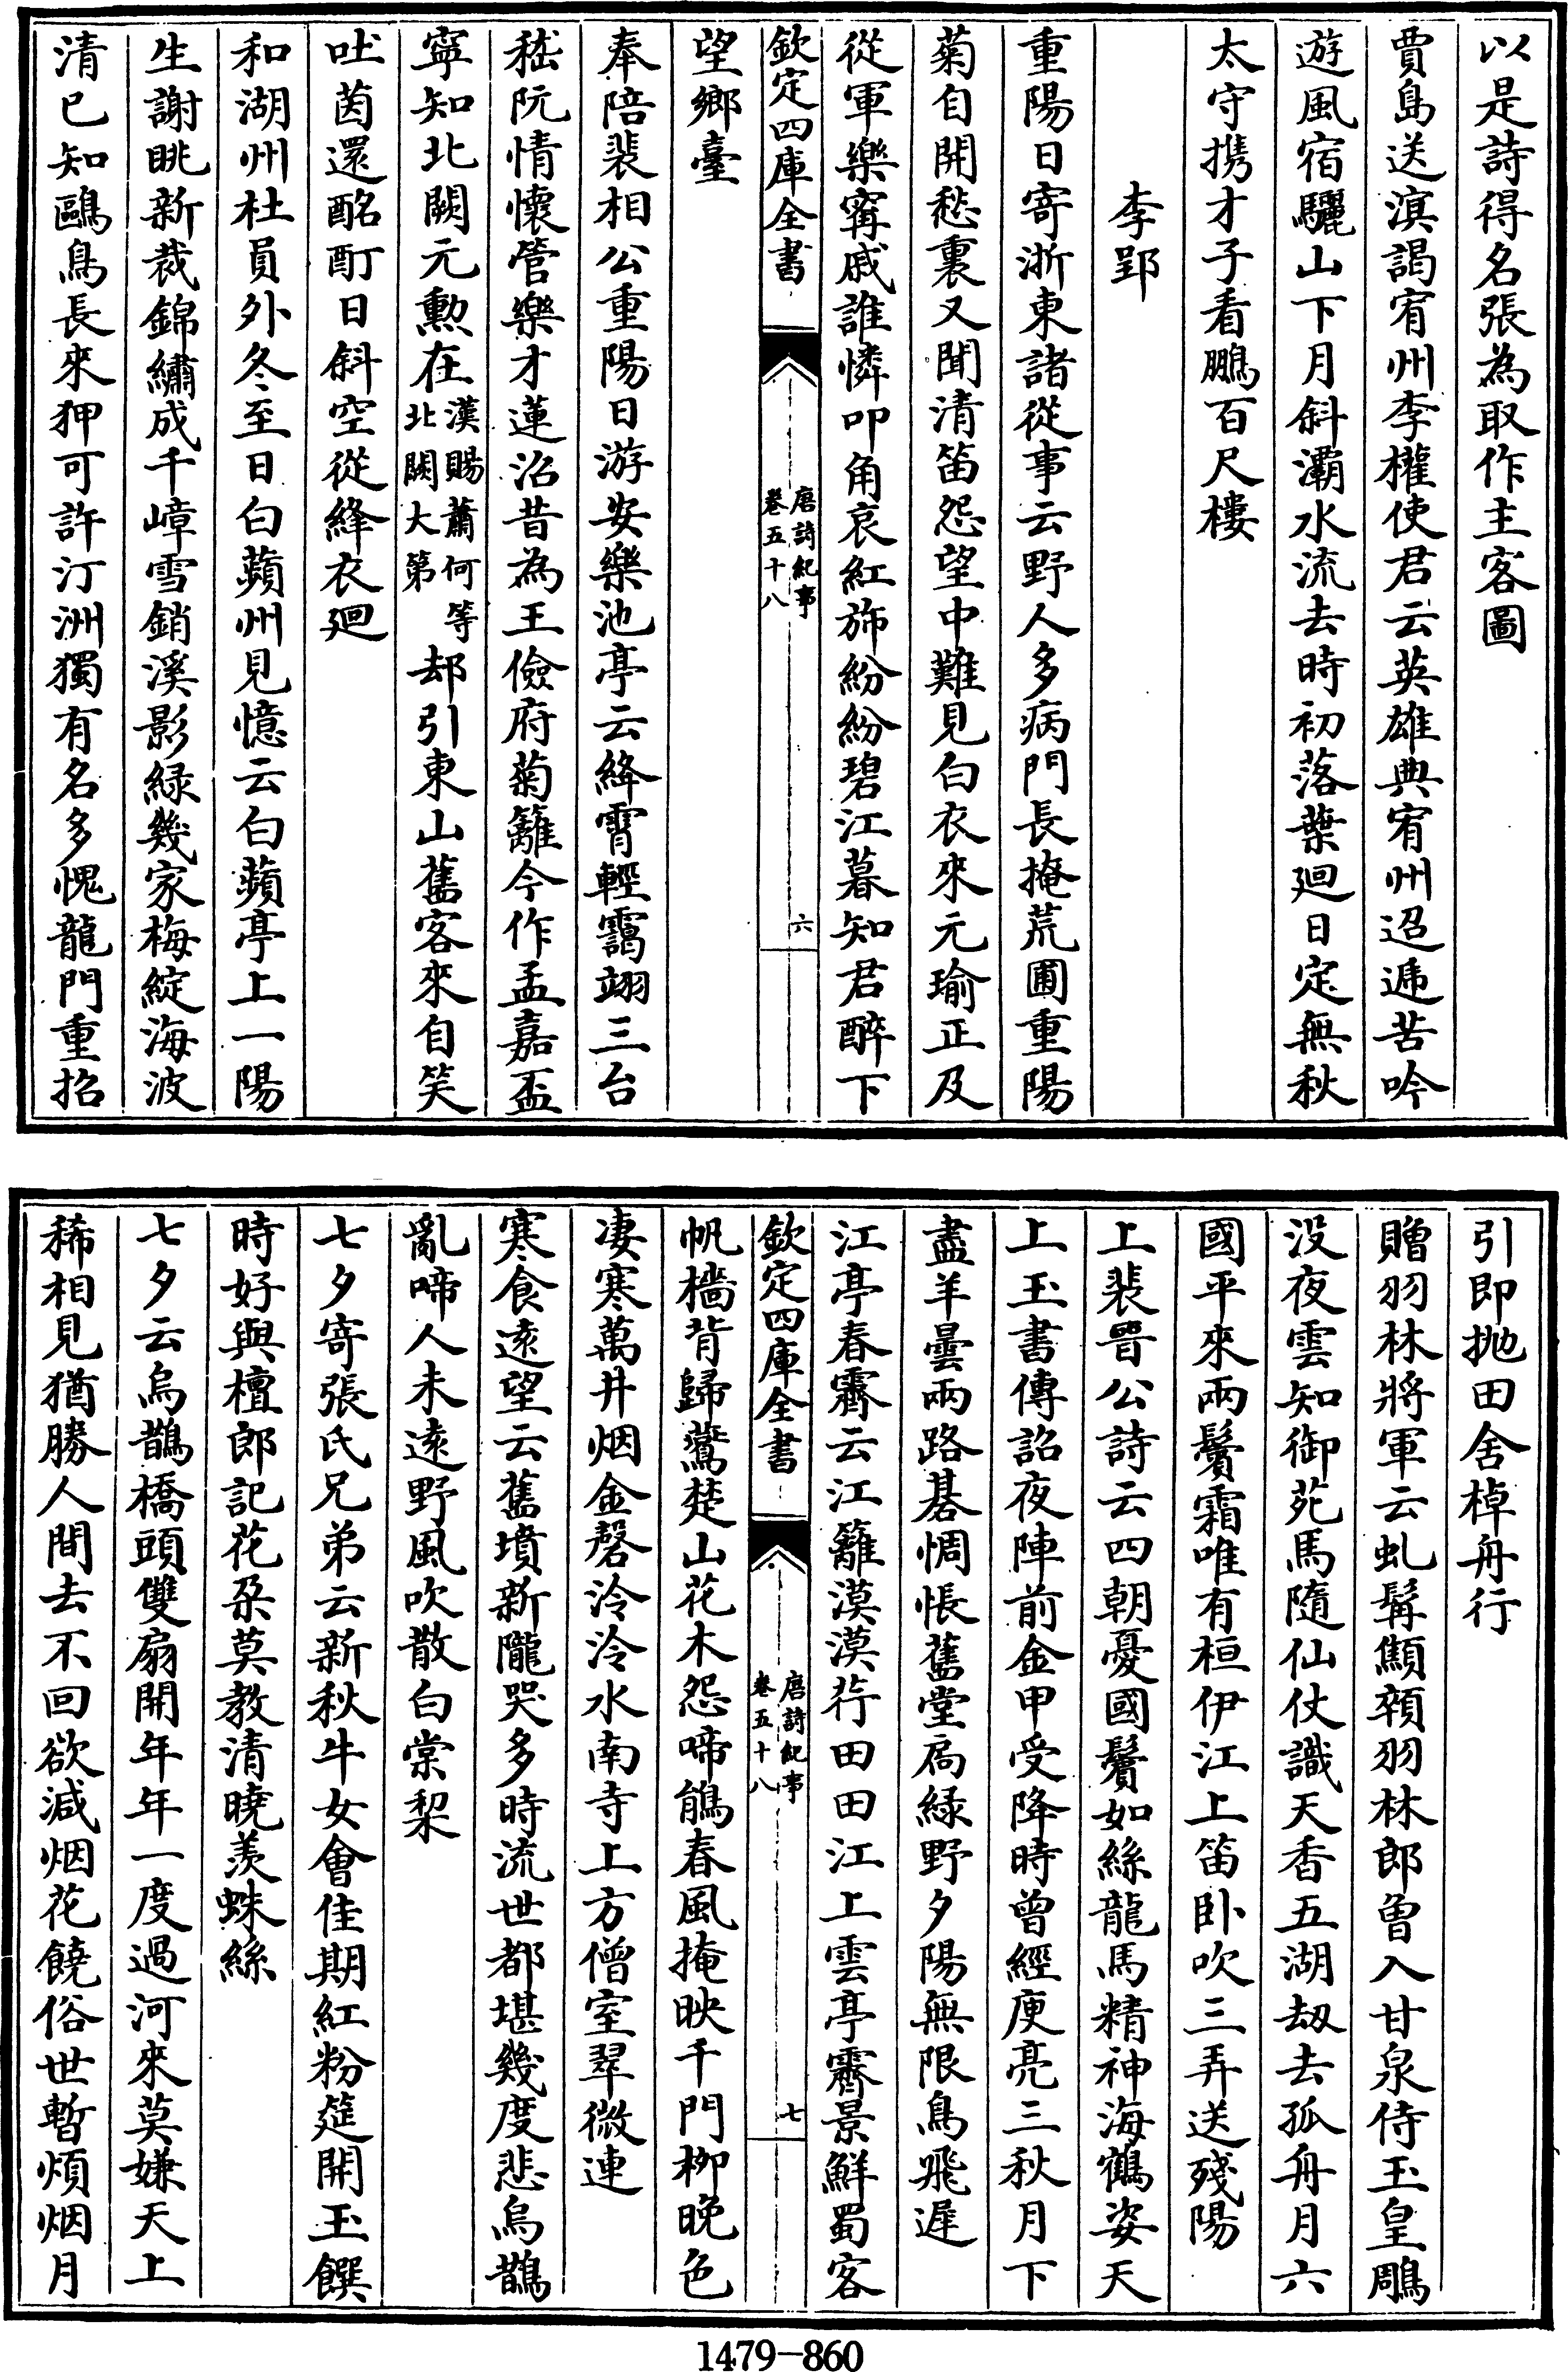 以是詩得名張為取作主客圖
賈島送滇謁宥州李權使君云英雄典宥州迢遞苦吟
遊風宿驪山下月斜灞水流去時初落葉廻日定無秋
太守携才子看鵬百尺樓
李郢
重陽日寄浙東諸從事云野人多病門長掩荒圃重陽
菊自開愁裏又聞清笛怨望中難見白衣來元瑜正及
從軍樂甯戚誰憐叩角哀紅斾紛紛碧江暮知君醉下
欽定四庫全書
唐詩紀事
卷五十八
六
望鄉臺
奉陪裴相公重陽日游安樂池亭云絳霄輕靄翊三台
嵇阮情懷管樂才蓮沼昔為王儉府菊籬今作孟嘉盃
寧知北闕元勲在漢賜蕭何等北闕大第却引東山舊客來自笑
吐茵還酩酊日斜空從絳衣廻
和湖州杜員外冬至日白蘋州見憶云白蘋亭上一陽
生謝眺新裁錦繡成千嶂雪銷溪影緑幾家梅綻海波
清已知鷗鳥長來狎可許汀洲獨有名多愧龍門重招
引即抛田舍棹舟行
贈羽林將軍云虬髯顦顇羽林郎曾入甘泉侍玉皇鵰
没夜雲知御苑馬隨仙仗識天香五湖刼去孤舟月六
國平來兩鬢霜唯有桓伊江上笛卧吹三弄送殘陽
上裴晉公詩云四朝憂國鬢如絲龍馬精神海鶴姿天
上玉書傳詔夜陣前金甲受降時曾經庾亮三秋月下
盡羊曇兩路碁惆悵舊堂扃緑野夕陽無限鳥飛遲
江亭春霽云江籬漠漠荇田田江上雲亭霽景鮮蜀客
欽定四庫全書
唐詩紀事
卷五十八
七
帆檣背歸鷰楚山花木怨啼鵑春風掩映千門柳晚色
凄寒萬井烟金磬泠泠水南寺上方僧室翠微連
寒食遠望云舊墳新隴哭多時流世都堪幾度悲烏鵲
亂啼人未遠野風吹散白棠棃
七夕寄張氏兄弟云新秋牛女會佳期紅粉筵開玉饌
時好與檀郎記花朶莫教清曉羨蛛絲
七夕云烏鵲橋頭雙扇開年年一度過河來莫嫌天上
稀相見猶勝人間去不回欲减烟花饒俗世暫煩烟月
1479-860